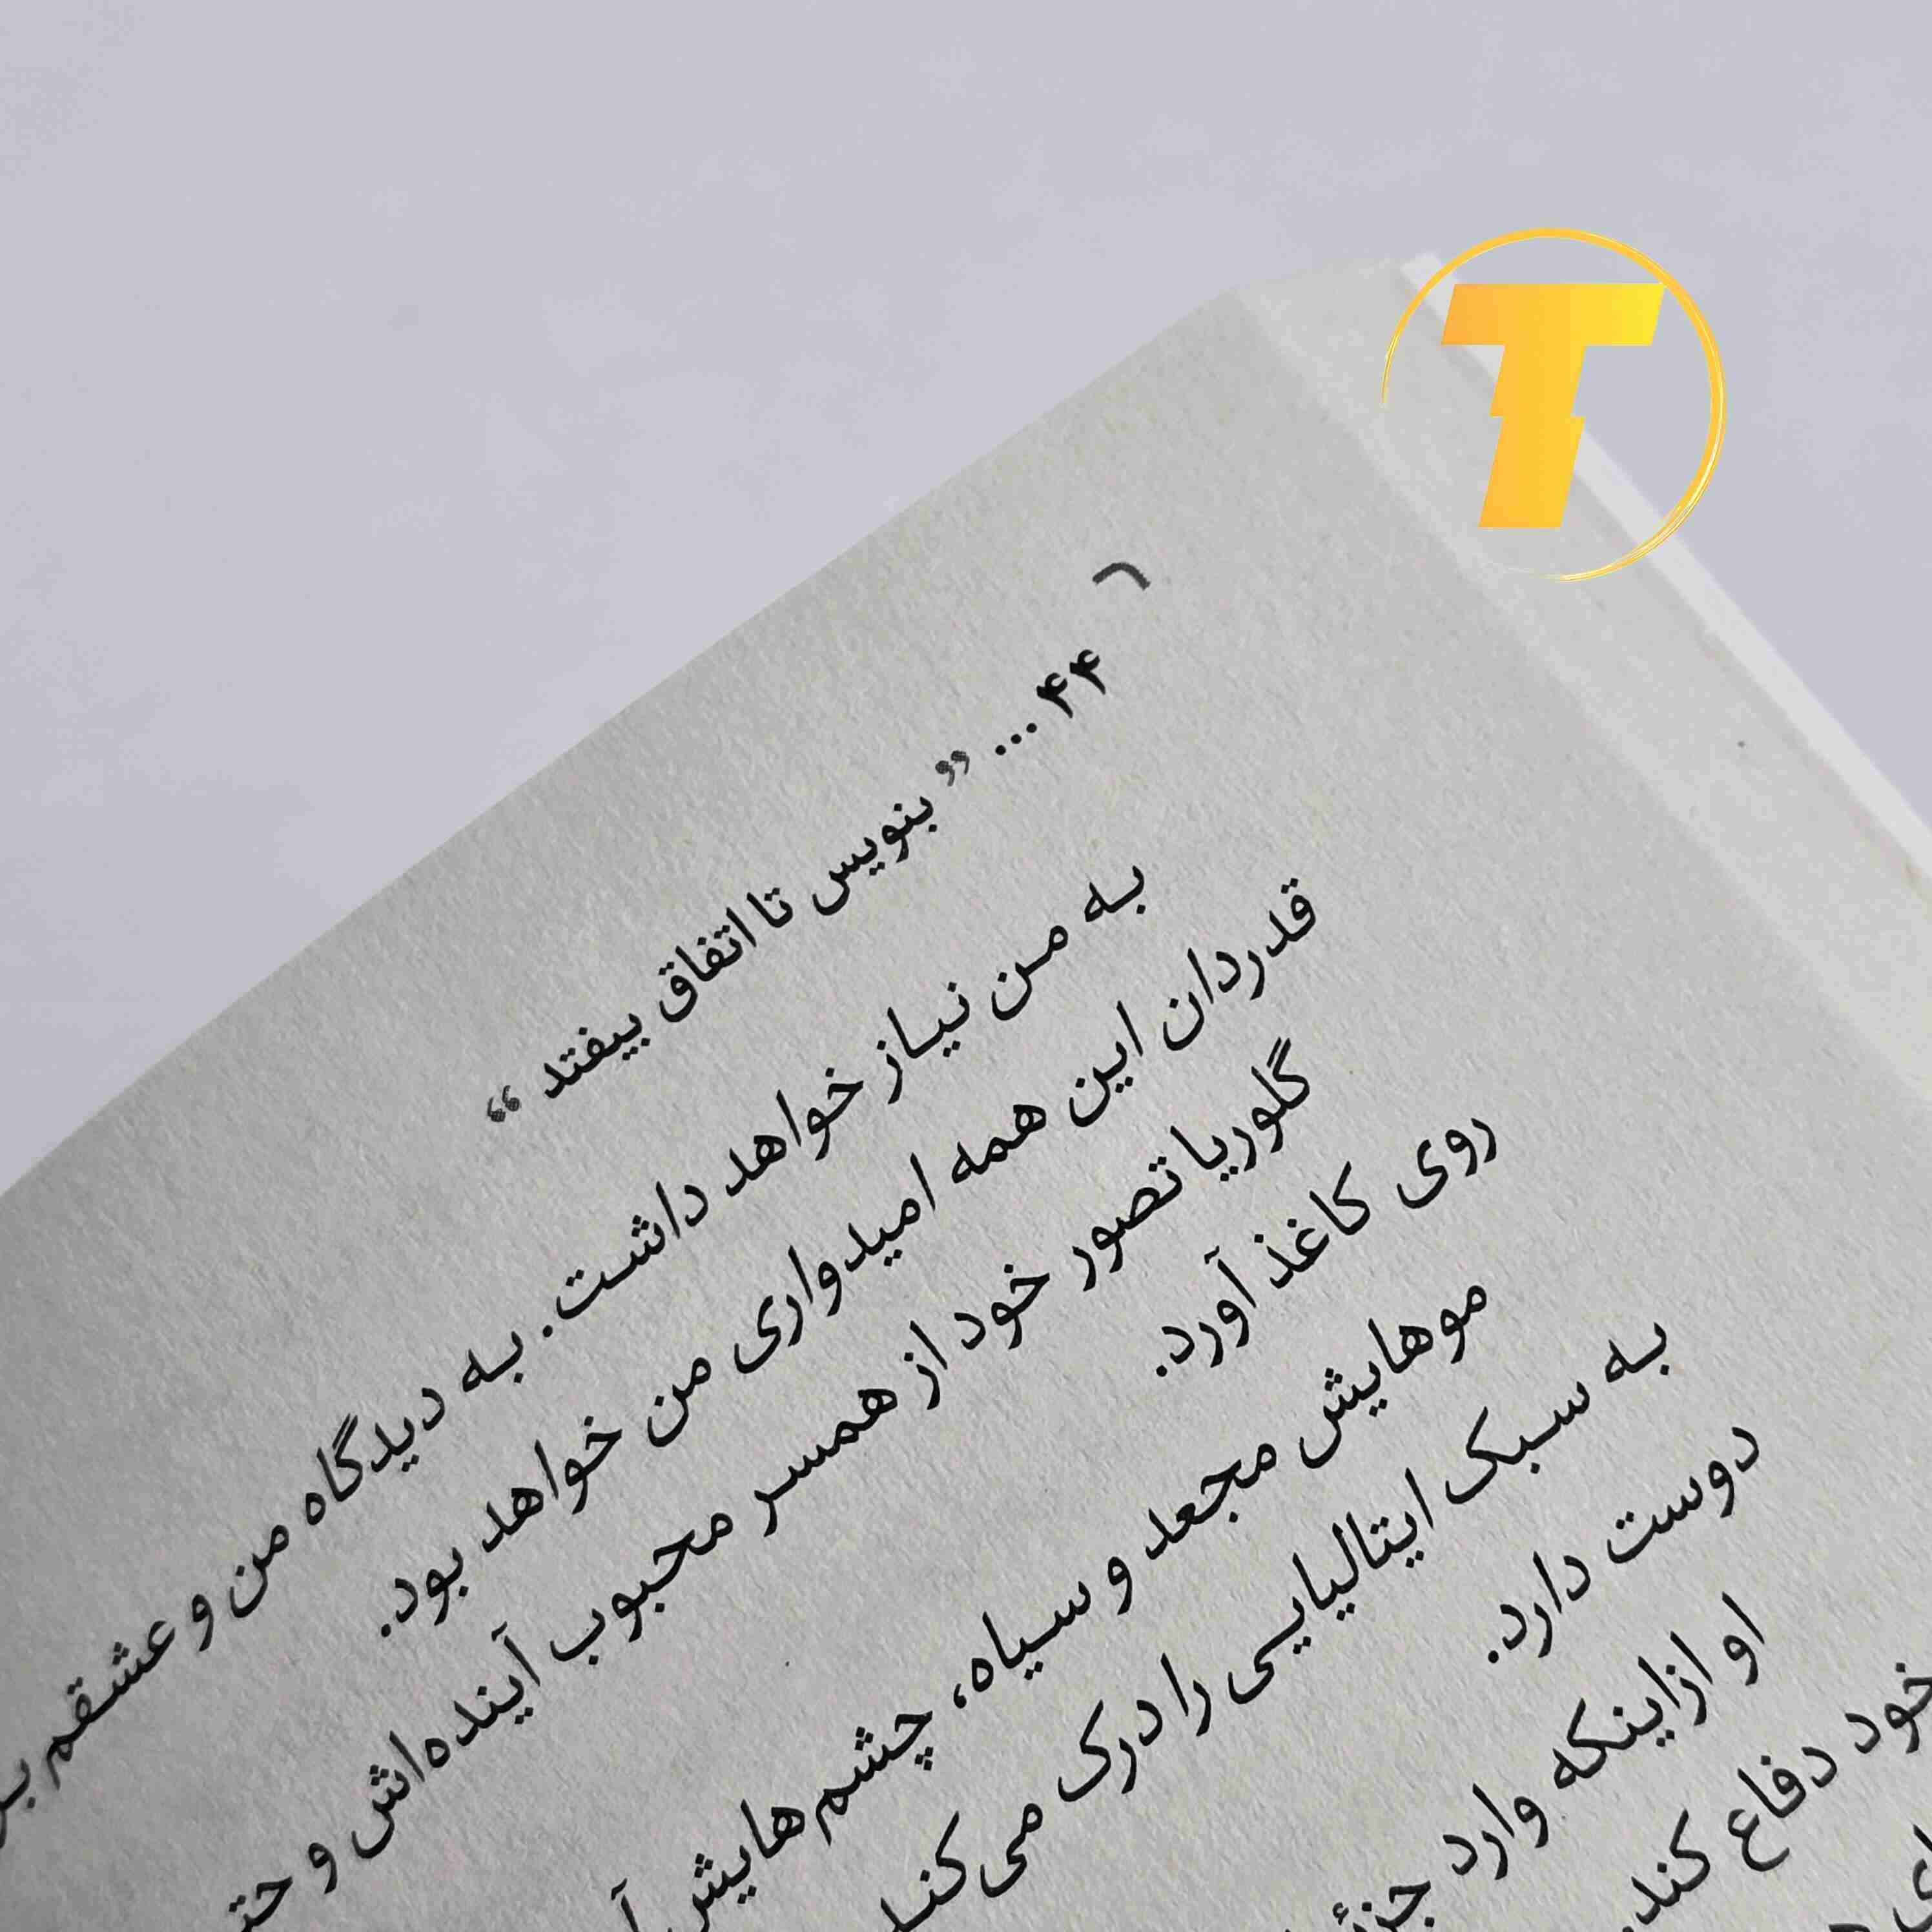 T
۴۴ ... ” بنویس تا اتفاق بیفتد “
به من نیاز خواهد داشت. به دیدگاه من و عشقم
قدردان این همه امیدواری من خواهد بود.
گلوریا تصور خود از همسر محبوب آینده‌اش و
روی کاغذ آورد.
موهایش مجعد و سیاه، چشم‌هایش
به سبک ایتالیایی را درک می‌کند
دوست دارد.
او از اینکه وارد
خود دفاع کند.